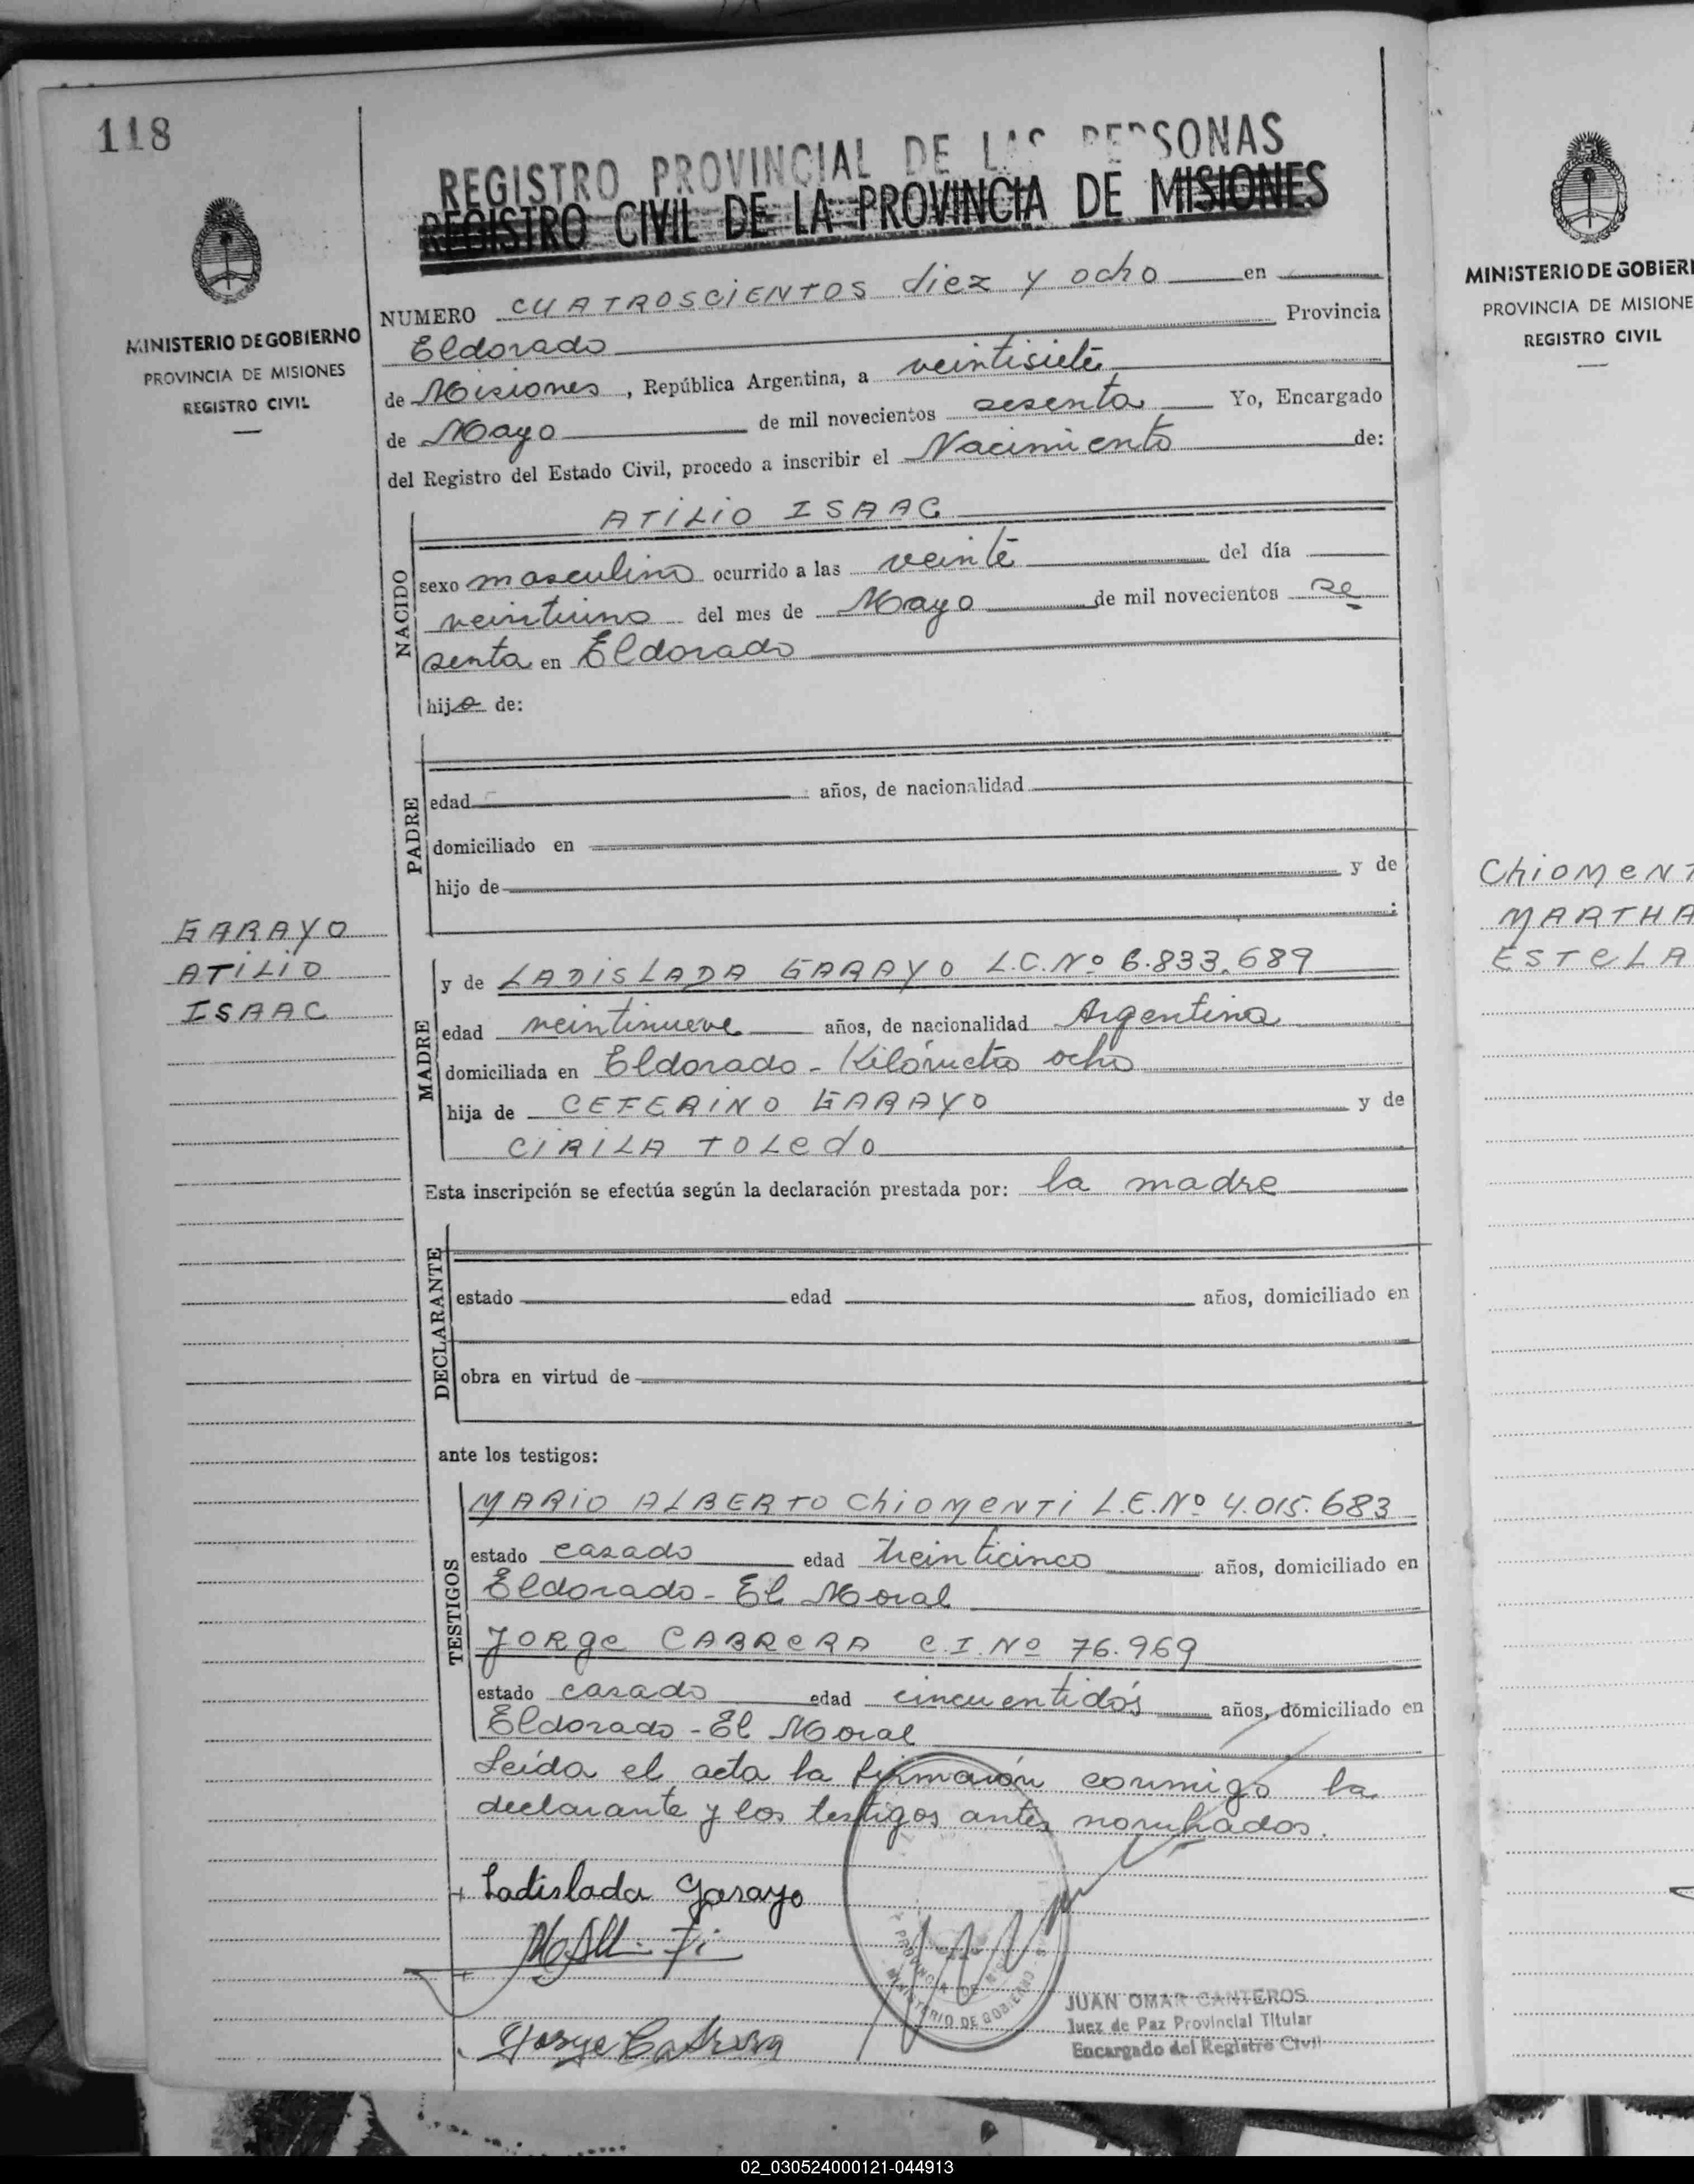 118
REGISTRO PROVINCIAL DE LAS PERSONAS
REGISTRO CIVIL DE LA PROVINCIA DE MISIONES
MINISTERIO DE GOBIERNO
PROVINCIA DE MISIONES
REGISTRO CIVIL
NUMERO CUATROSCIENTOS diez y ocho en
Eldorado Provincia
de Misiones, República Argentina, a veintisiete
de Mayo de mil novecientos sesenta Yo, Encargado
del Registro del Estado Civil, procedo a inscribir el Nacimiento de:
NACIDO
ATILIO ISAAC
sexo masculino ocurrido a las veinte del día
veintiuno del mes de Mayo de mil novecientos se
senta en Eldorado
hijo de:
PADRE
edad años, de nacionalidad
domiciliado en
hijo de y de
:
GARAYO
ATILIO
ISAAC
MADRE
y de LADISLADA GARAYO L.C.Nº 6.833.689
edad veintinueve años, de nacionalidad Argentina
domiciliada en Eldorado - Kilómetro ocho
hija de CEFERINO GARAYO y de
CIRILA TOLEdo
Esta inscripción se efectúa según la declaración prestada por: la madre
DECLARANTE
estado edad años, domiciliado en
obra en virtud de
ante los testigos:
TESTIGOS
MARIO ALBERTO ChiOMeNTi L.E.Nº 4.015.683
estado casado edad treinticinco años, domiciliado en
Eldorado - El Moral
JORge CABReRA C.I.Nº 76.969
estado casado edad cincuentidós años, domiciliado en
Eldorado - El Moral
Leída el acta la firmaron conmigo la
declarante y los testigos antes nombrados.
Ladislada Garayo
Jorge Cabrera
PROVINCIA DE MIS
MINISTERIO DE GOBIERNO
JUAN OMAR CANTEROS
Juez de Paz Provincial Titular
Encargado del Registro Civil
MINISTERIO DE GOBIER
PROVINCIA DE MISIONE
REGISTRO CIVIL
ChiOMeNT
MARTHA
ESTeLA
02_030524000121-044913